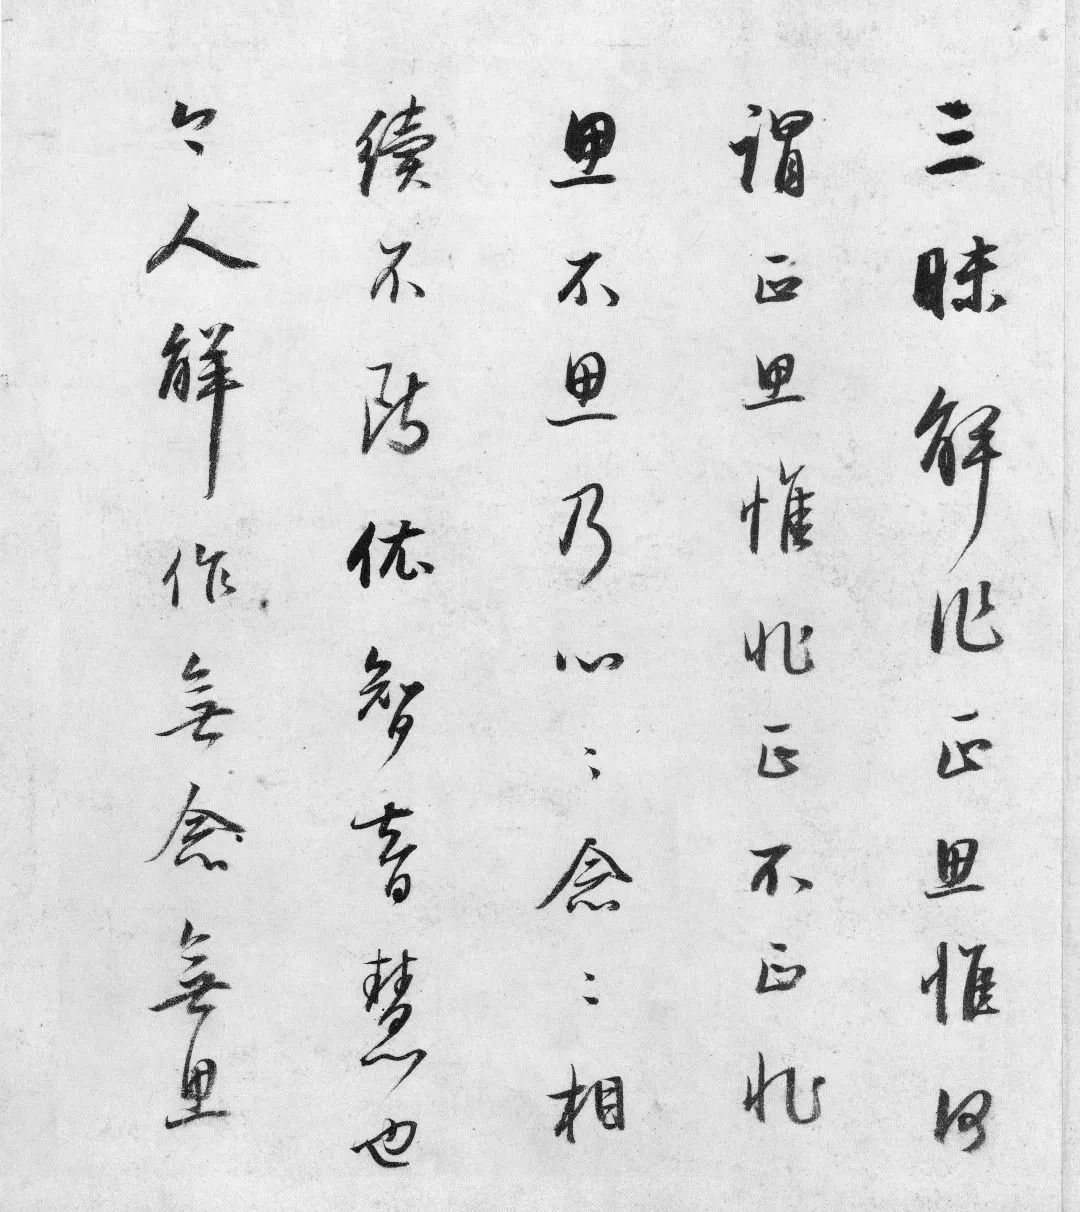 三昧解作正思惟何
謂正思惟非正不正非
思不思乃心々念々相
續不依智慧也
今人解作無念無思